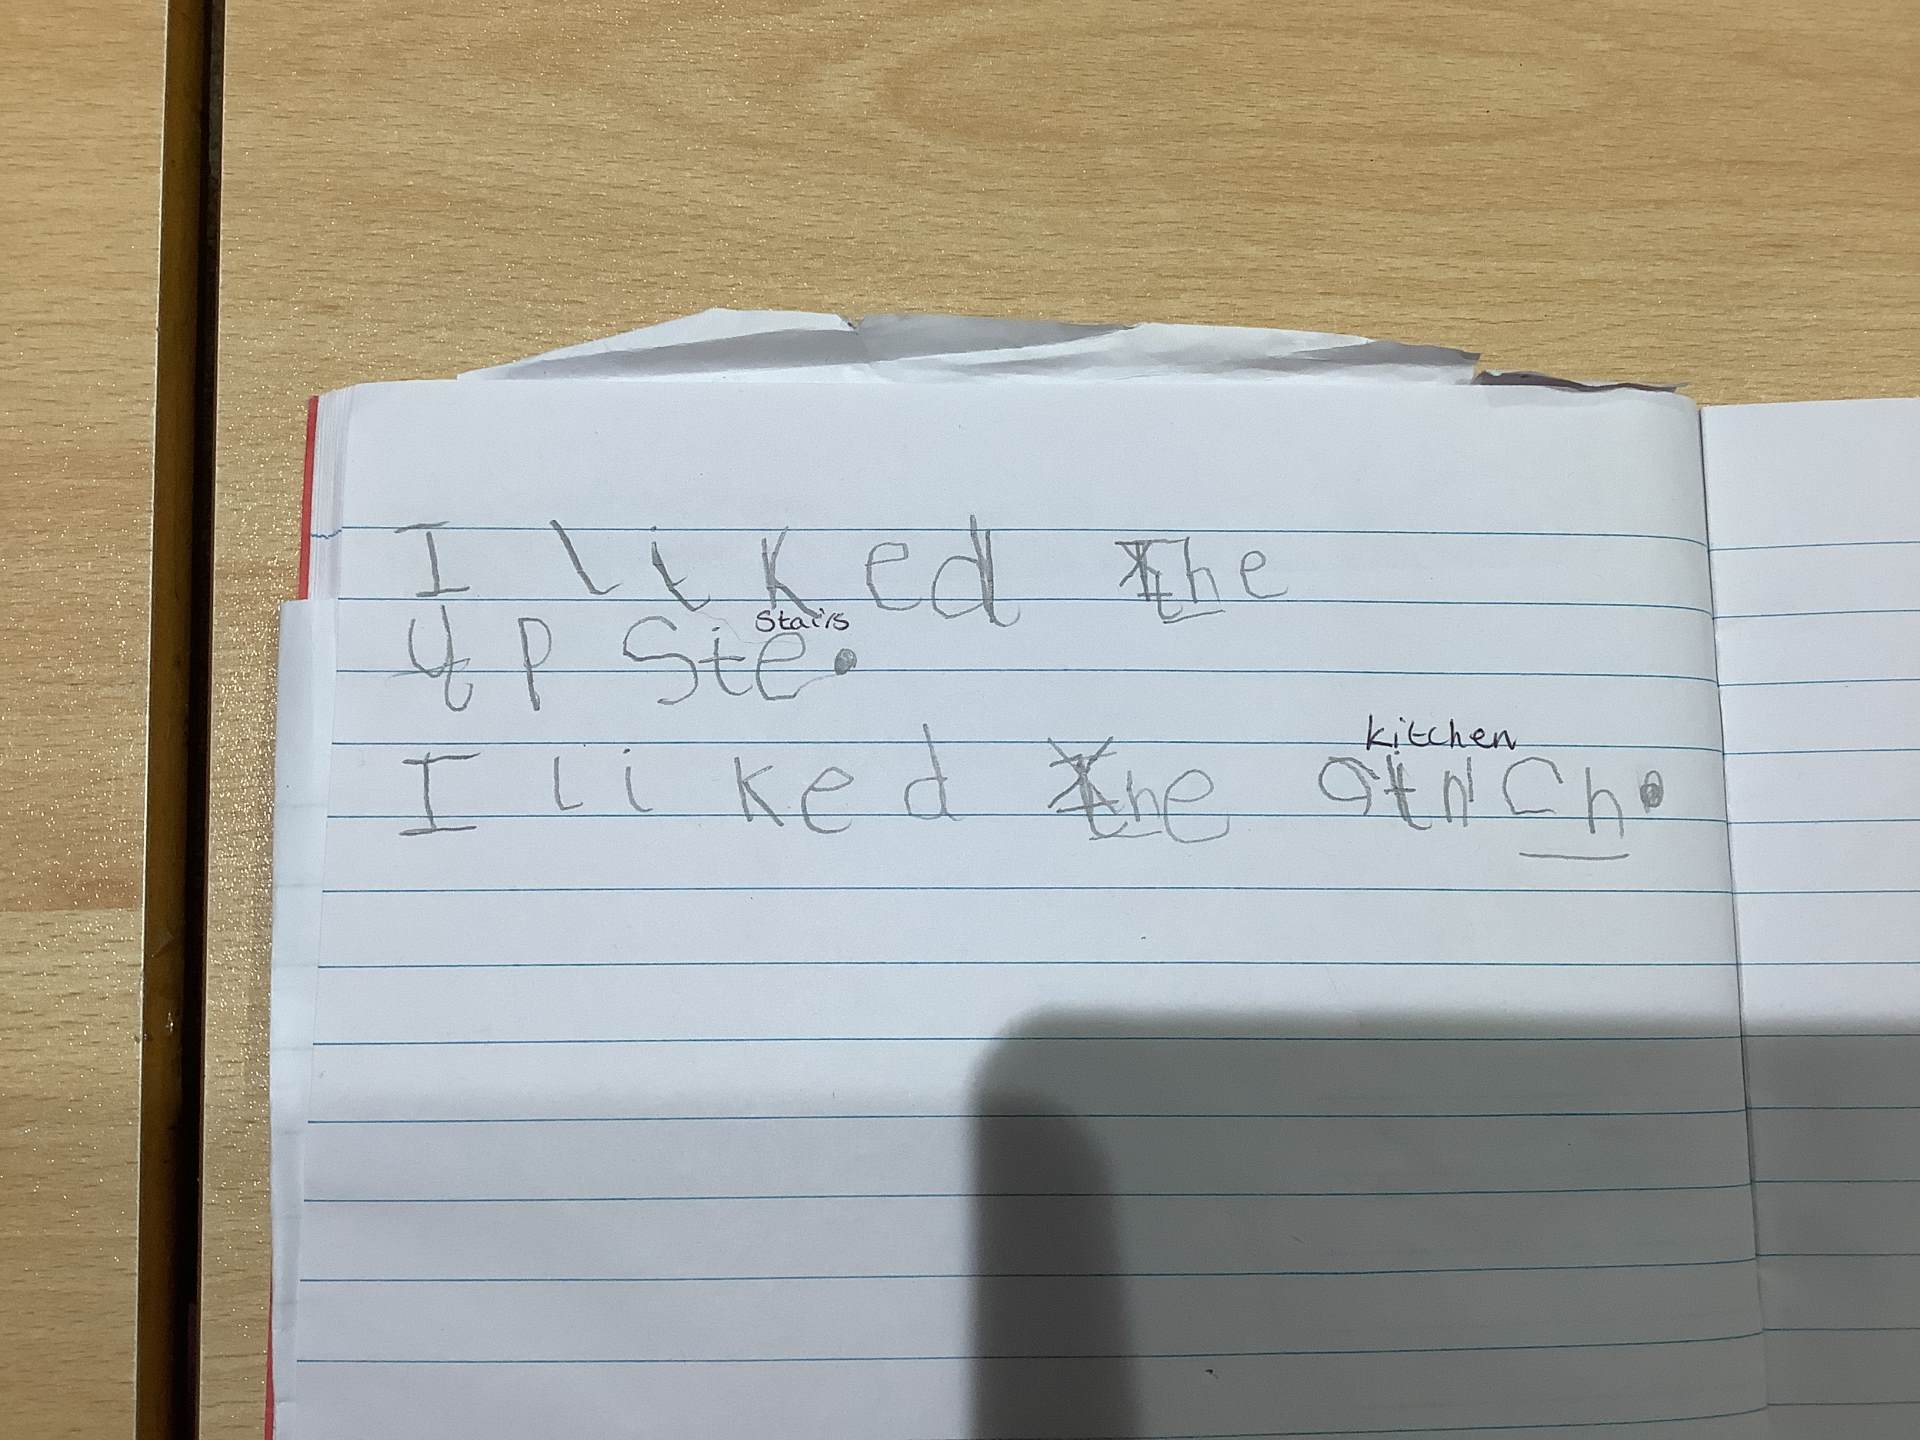 I liked the
stairs
up ste.
kitchen
I liked the